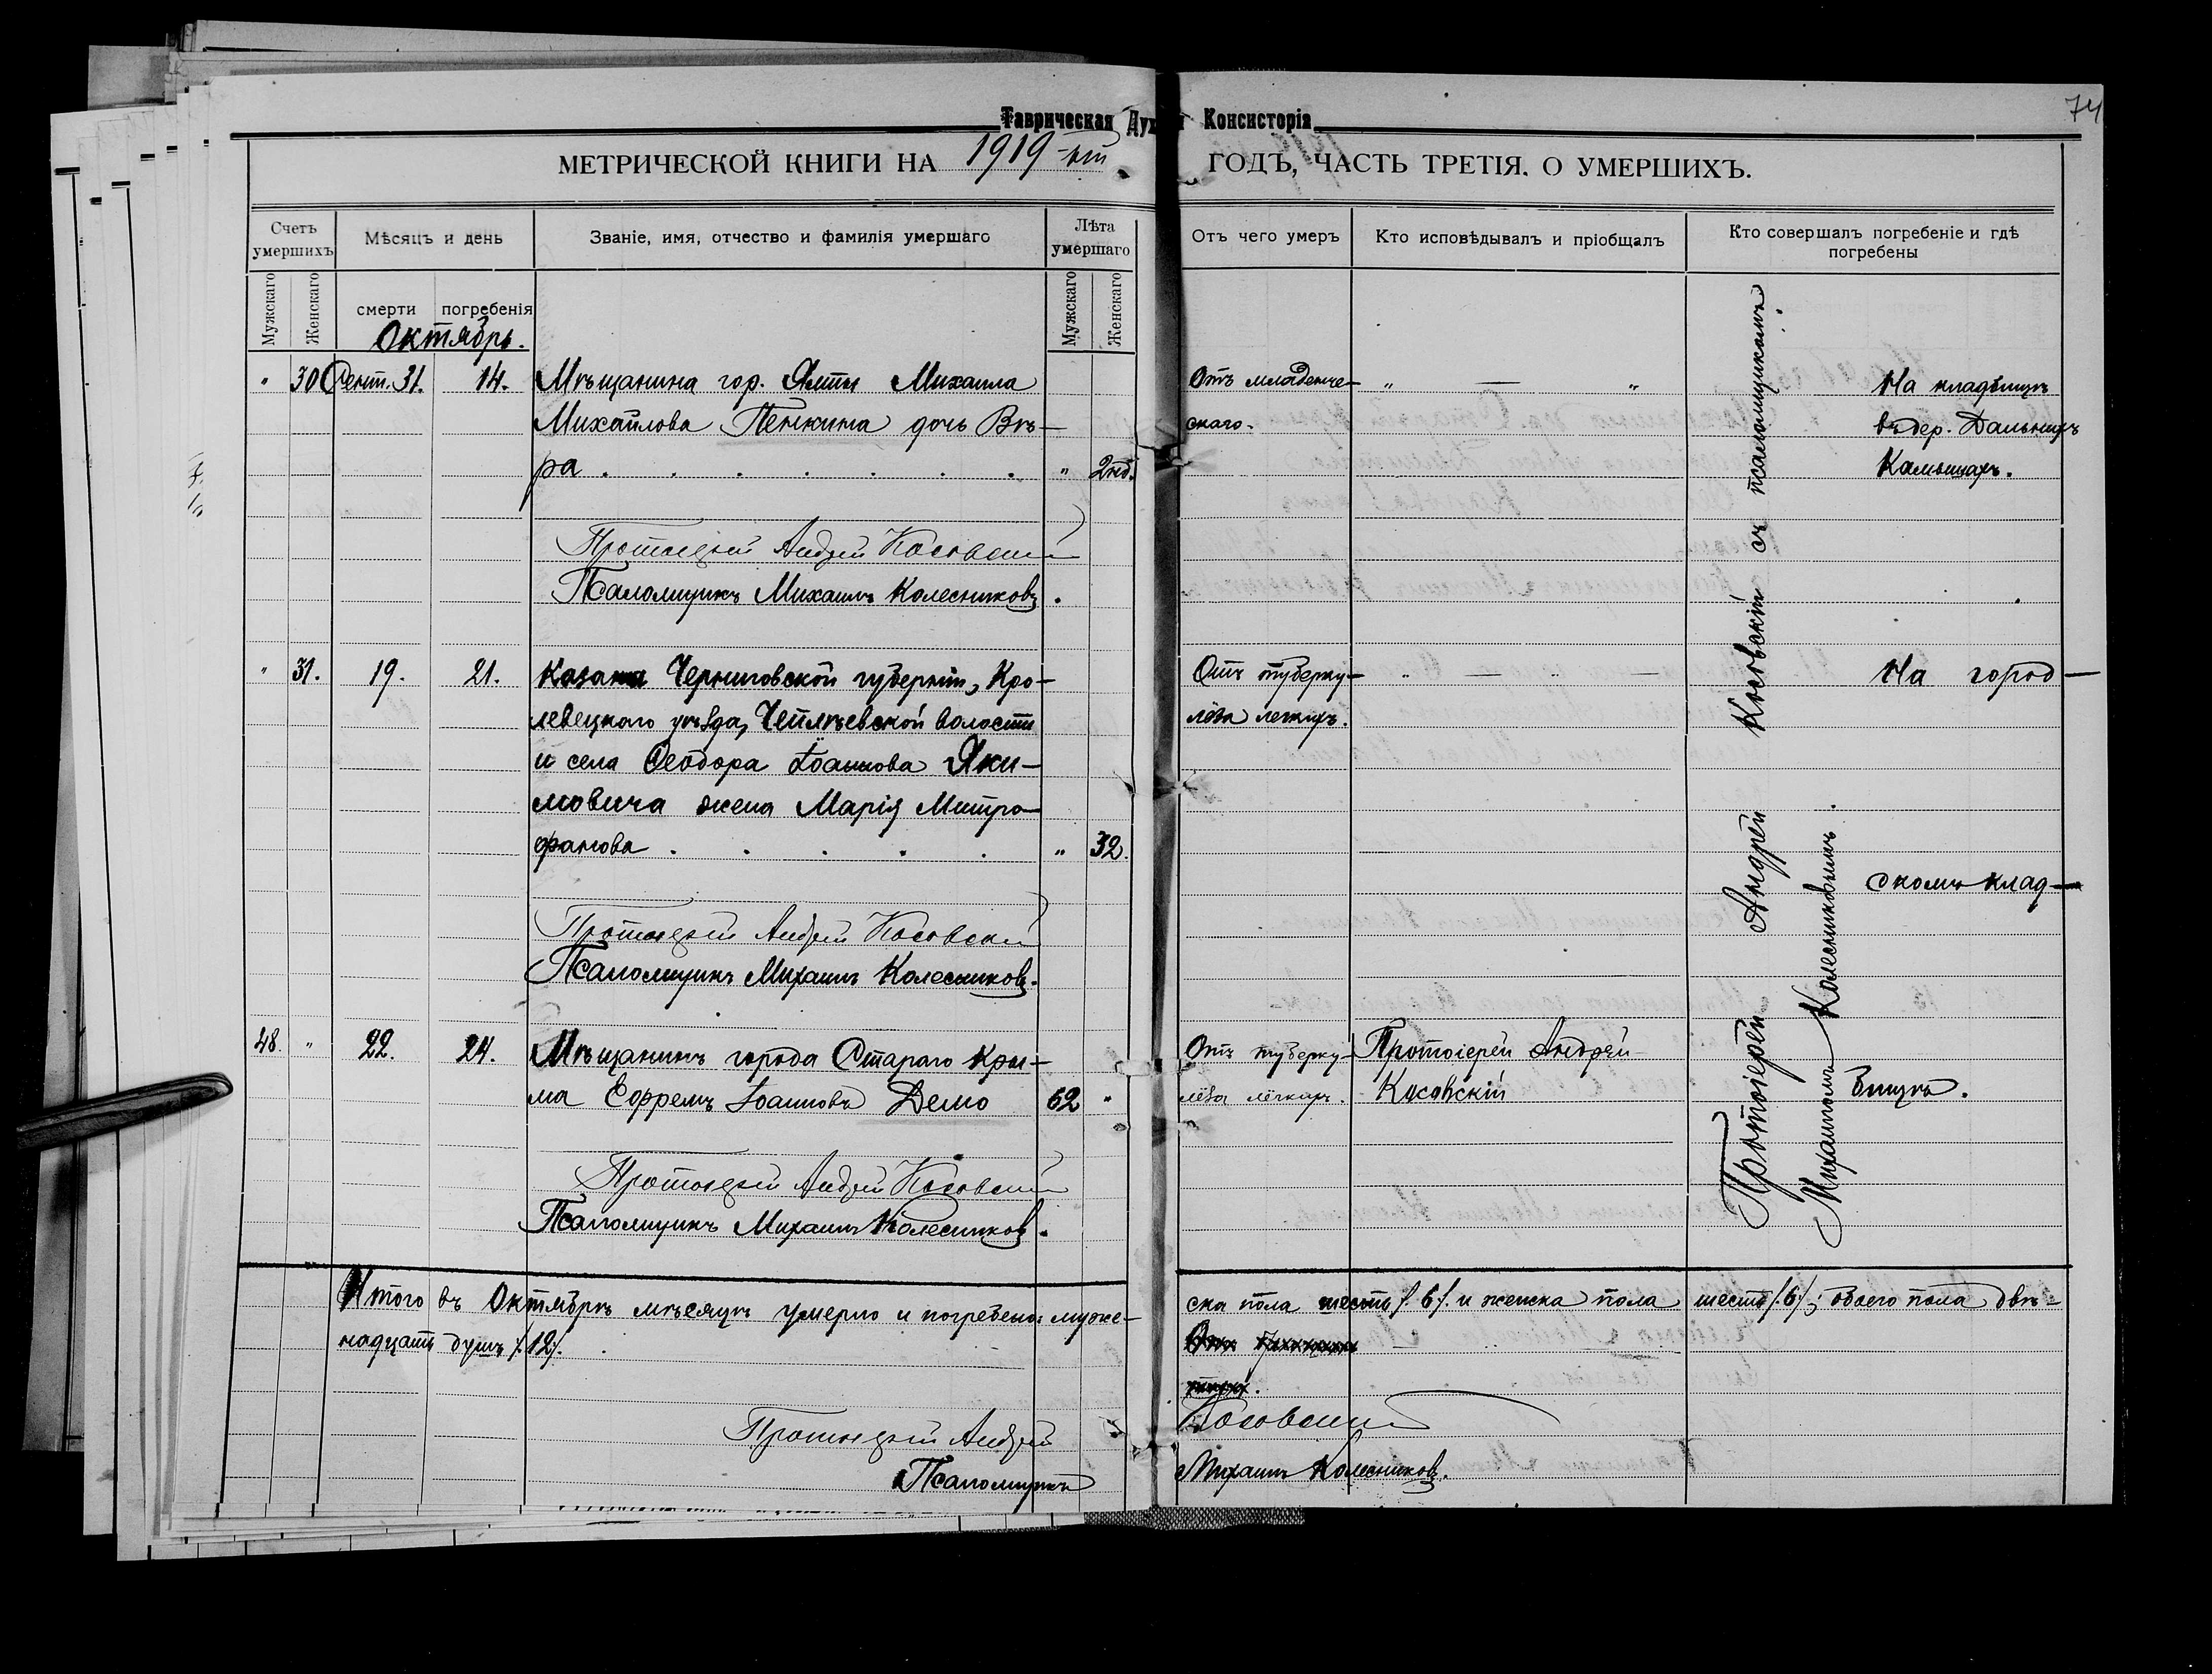 74
Таврическая Дух Консисторія
МЕТРИЧЕСКОЙ КНИГИ НА 1919-ый ГОДЪ, ЧАСТЬ ТРЕТІЯ. О УМЕРШИХЪ.
Счетъ умершихъ
Мѣсяцъ и день
Званіе, имя, отчество и фамилія умершаго
Лѣта умершаго
Отъ чего умеръ
Кто исповѣдывалъ и пріобщалъ
Кто совершалъ погребеніе и гдѣ погребены
Мужскаго
Женскаго
смерти
погребенія
Мужскаго
Женскаго
Октябрь.
" 30 Сент. 31. 14. Мѣщанина гор. Ялты Михаила Отъ младенче- " — " На кладбищѣ
Михайлова Пенкина дочь Вѣ- скаго. въ дер. Дальнихъ
ра . . . . . . . " 2 нед. Камышахъ.
Протоіерей Андрей Косовскій
Псаломщикъ Михаилъ Колесниковъ.
" 31. 19. 21. Казака Черниговской губерніи, Кро- Отъ туберку- " — " — На город-
левецкаго уѣзда, Чепліевской волости лёза легкихъ.
и села Ѳеодора Іоаннова Яки-
мовича жена Марія Митро-
фанова . . . . . " 32.
скомъ клад-
Протоіерей Андрей Косовскій
Псаломщикъ Михаилъ Колесниковъ.
48. " 22. 24. Мѣщанинъ города Стараго Кры- Отъ туберку- Протоіерей Андрей
ма Ефремъ Іоанновъ Демо 62 " лёза лёгкихъ. Косовскій бищѣ.
Протоіерей Андрей Косовскій
Псаломщикъ Михаилъ Колесниковъ.
Протоіерей Андрей Косовскій съ псаломщикомъ
Михаиломъ Колесниковымъ.
Итого въ Октябрѣ мѣсяцѣ умерло и погребено: муже- ска пола шесть /.6/. и женска пола шесть /.6/, обоего пола двѣ-
надцать душъ /.12/.
Протоіерей Андрей Косовскій
Псаломщикъ Михаилъ Колесниковъ.